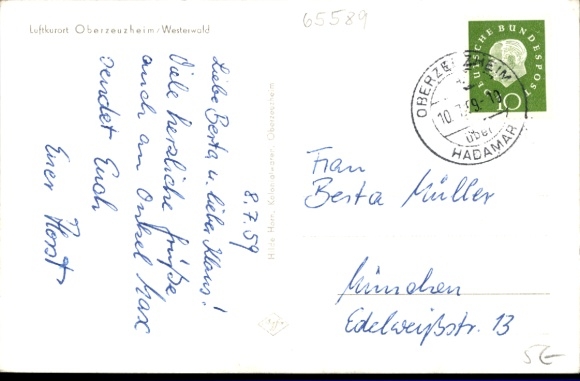 Luftkurort Oberzeuzheim/Westerwald
65589
8.7.59
Liebe Berta u. lieber Klaus!
Viele herzliche Grüße
auch an Onkel Max
sendet Euch
Euer Horst
Hilde Horn, Kolonialwaren, Oberzeuzheim
Agfa
DEUTSCHE BUNDESPOST
10
OBERZEUZHEIM
10.7.59-10
über
HADAMAR
Frau
Berta Müller
München
Edelweißstr. 13
5€